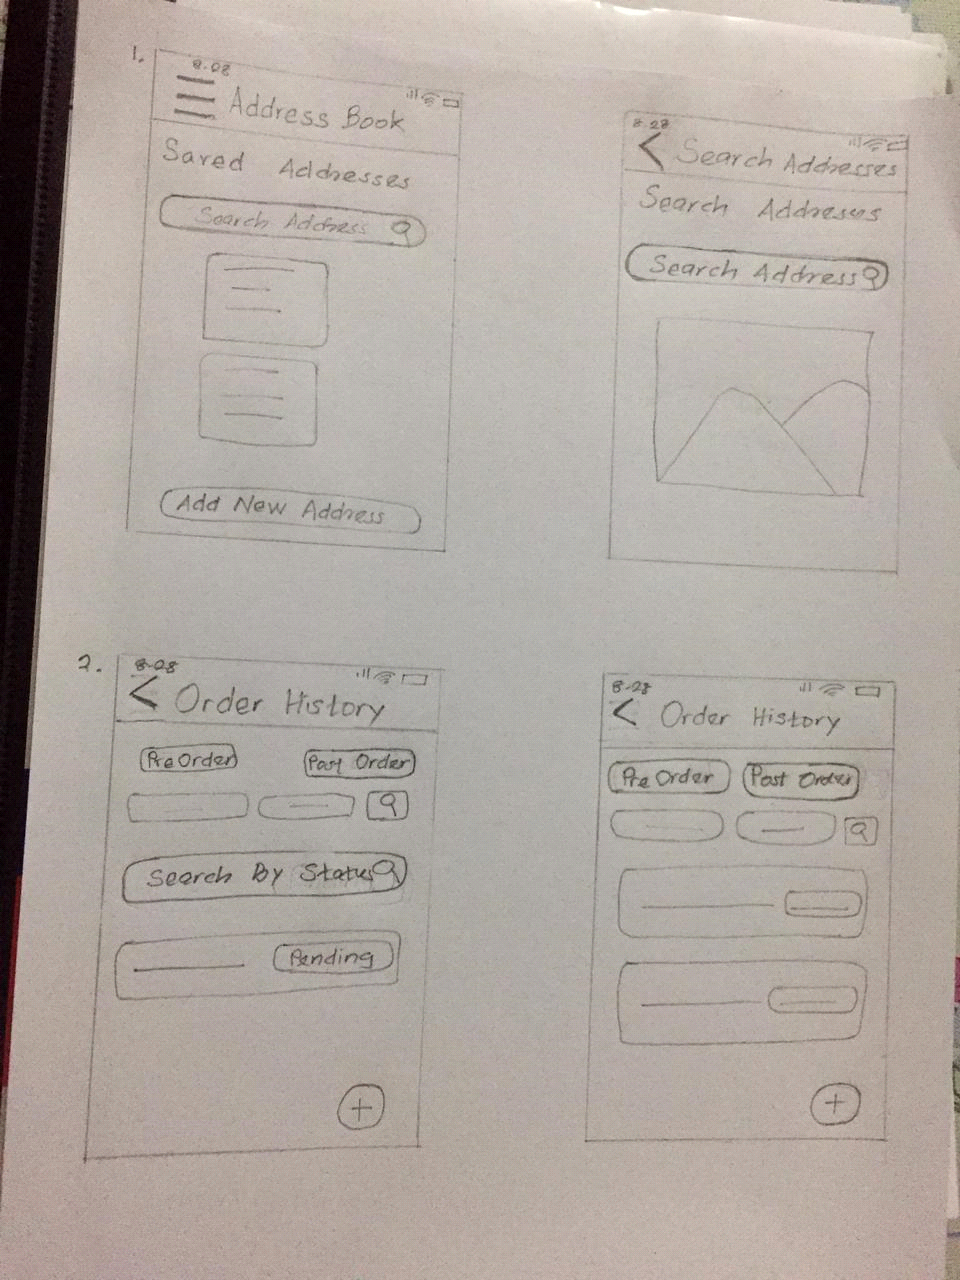 1.
8.08
Address Book
Saved Addresses
Search Address
Add New Address
8.28
Search Addresses
Search Addresses
Search Address
2.
8-08
Order History
Pre Order Past Order
Search By Status
Pending
8-28
Order History
Pre Order Past Order